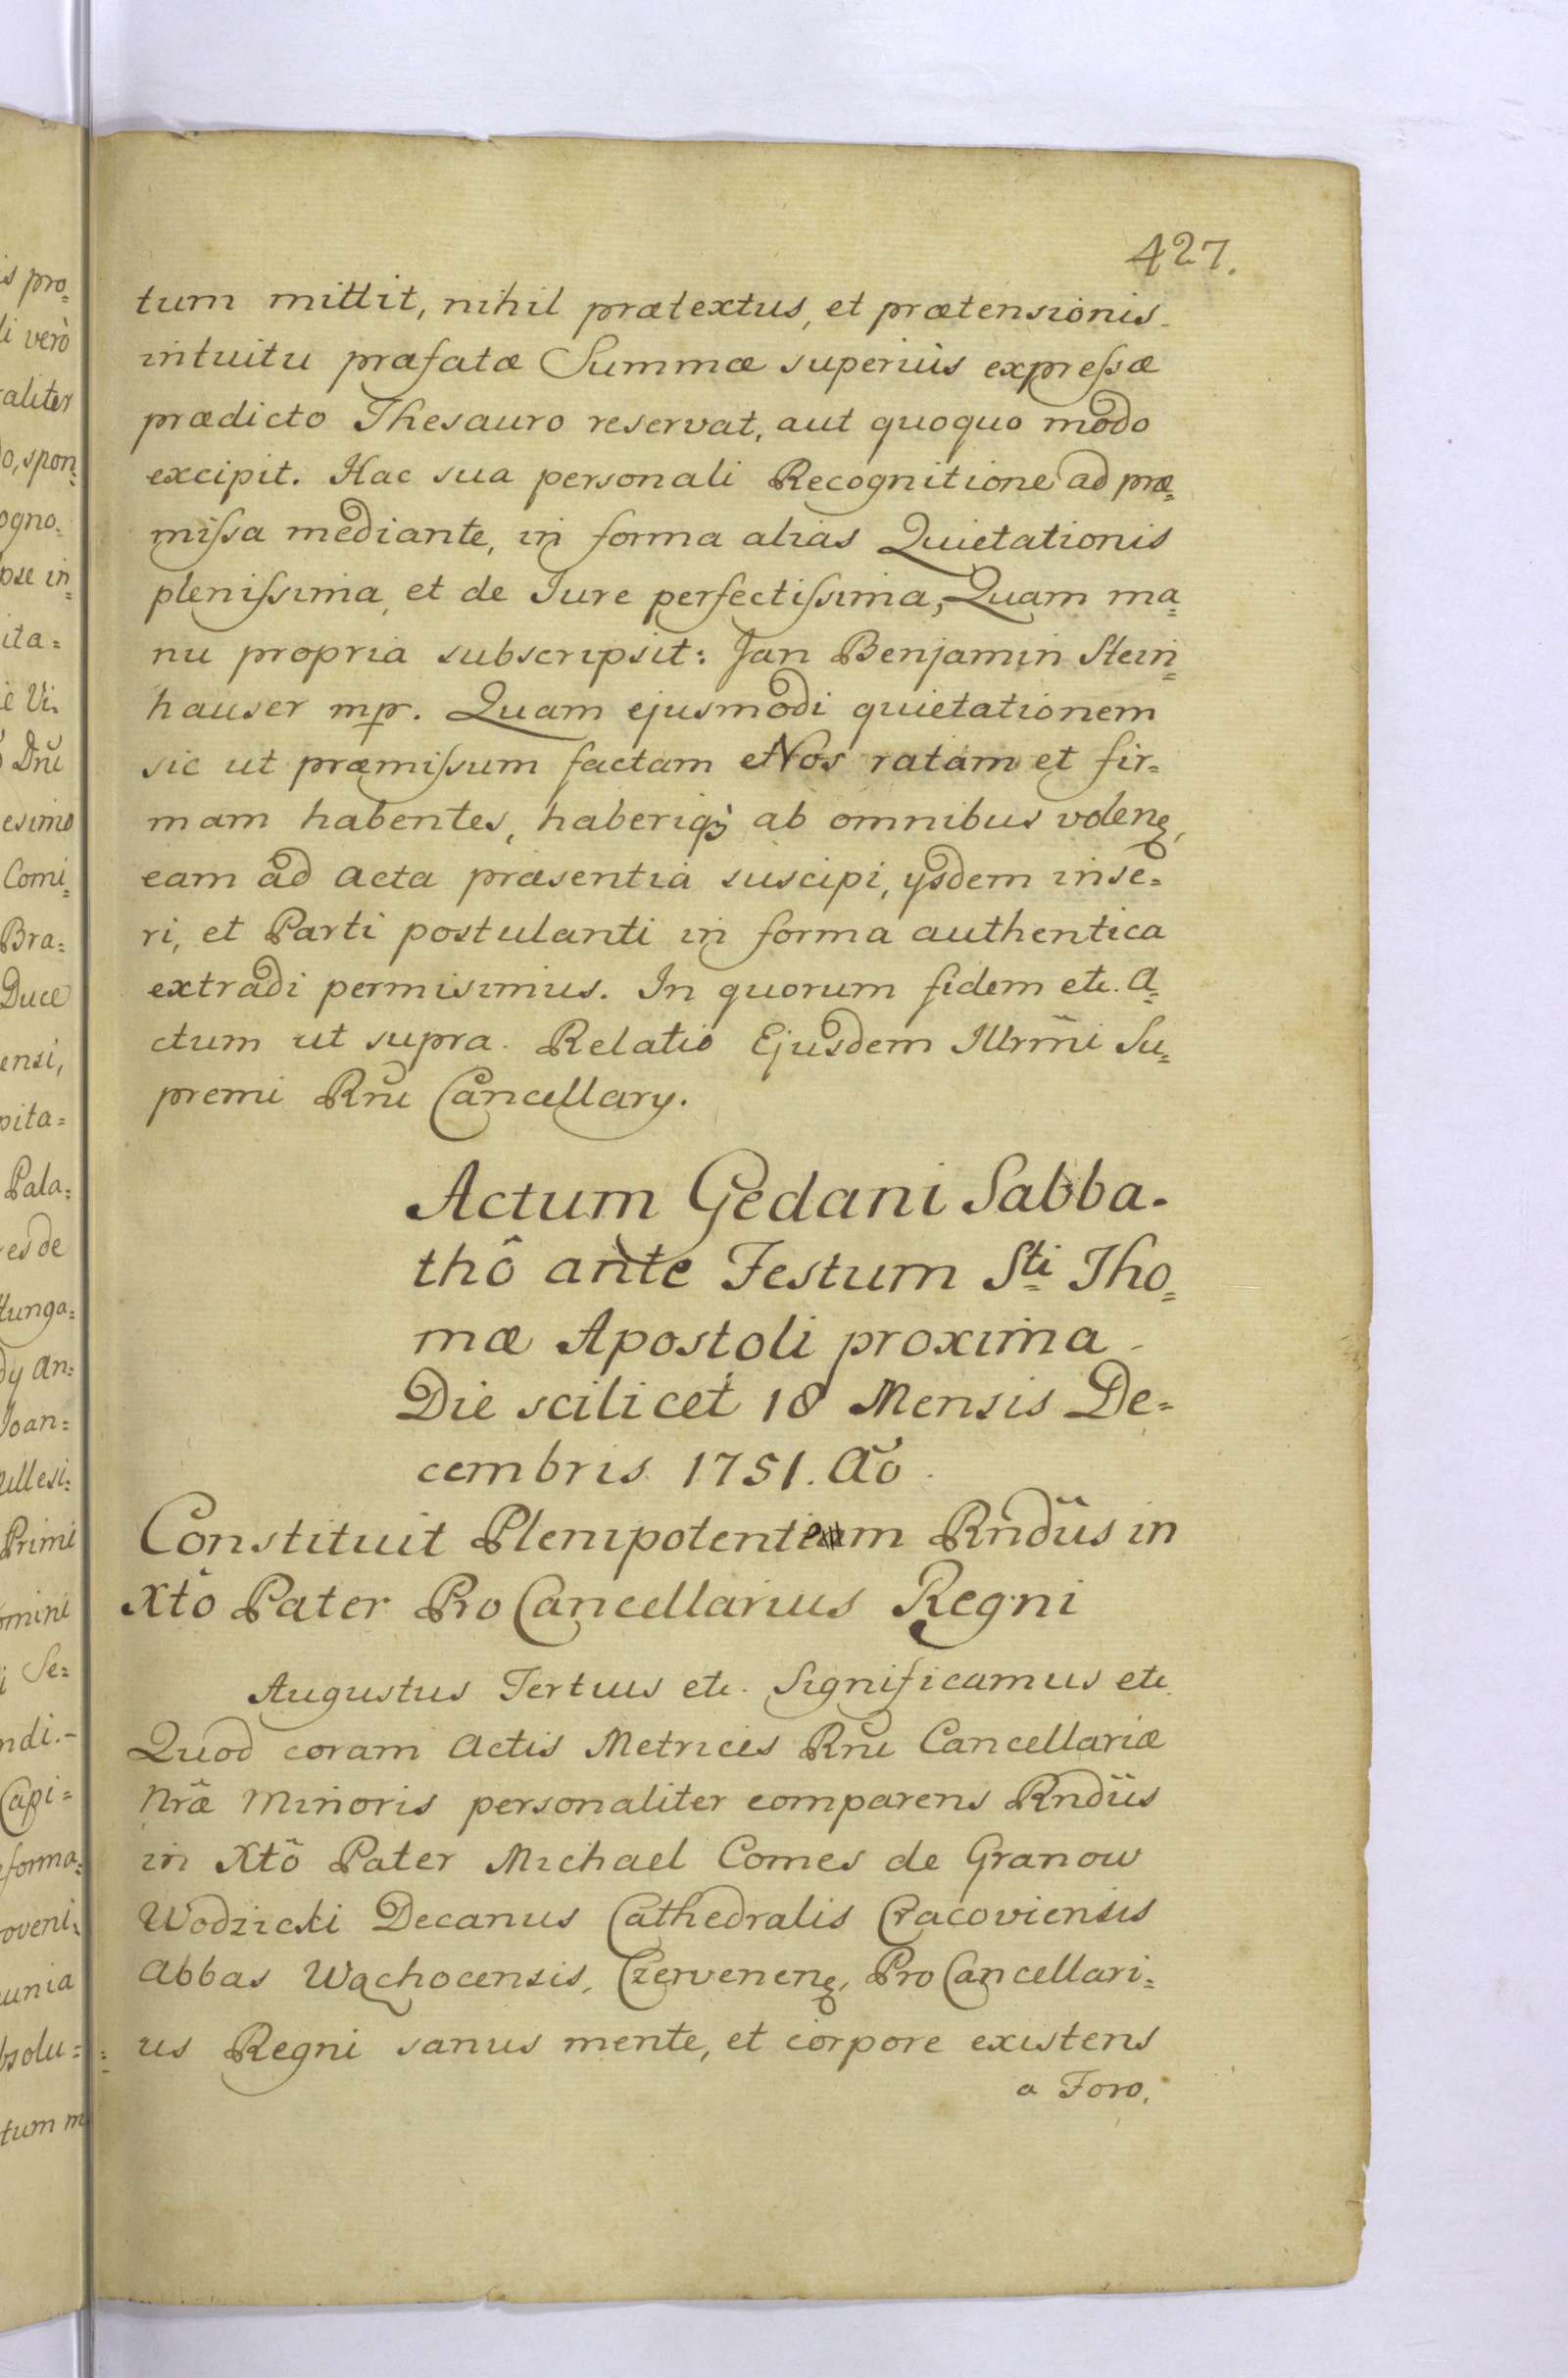 427.
tum mittit, nihil prætextus, et prætensionis
intuitu præfatæ Summæ superiùs expreſsæ
prædicto Thesauro reservat, aut quoquo modo
excipit. Hac sua personali Recognitione ad præ=
miſsa mediante, in forma alias Quietationis
pleniſsima, et de Iure perfectiſsima, Quam ma=
nu propria subscripsit: Jan Benjamin Stein=
hauser mp. Quam ejusmodi quietationem
sic ut præmiſsum factam et Nos ratam et fir=
mam habentes, haberiqȝ ab omnibus volenꝫ,
eam ad acta præsentia suscipi, ysdem inse=
ri, et Parti postulanti in forma authentica
extradi permisimus. In quorum fidem etc. A=
ctum ut supra. Relatio Ejusdem Illrm̃i Su=
premi Rnĩ Cancellary.
Actum Gedani Sabba=
thô ante Festum Sti Tho=
mæ Apostoli proxima
Die scilicet 18 Mensis De=
cembris 1751. Aõ.
Constituit Plenipotentem Rndũs in
Xtõ Pater ProCancellarius Regni
Augustus Tertius etc. Significamus etc.
Quod coram Actis Metrices Rnĩ Cancellariæ
Nrã Minoris personaliter comparens Rndũs
in Xtõ Pater Michael Comes de Granow
Wodzicki Decanus Cathedralis Cracoviensis
Abbas Wąchocensis, Czervenenꝫ, ProCancellari=
us Regni sanus mente, et corpore existens
a Foro,
is pro=
li verò
raliter
do, spon=
ogno=
pse in=
ita=
Dnĩ
esimo
Comi=
Bra=
Duce
ensi,
pita=
Pala=
es de
Hunga=
dy An=
Joan=
ellesi=
Primi
omini
i Se=
ndi.
Capi=
forma=
oveni=
unia
bsolu=
tum m